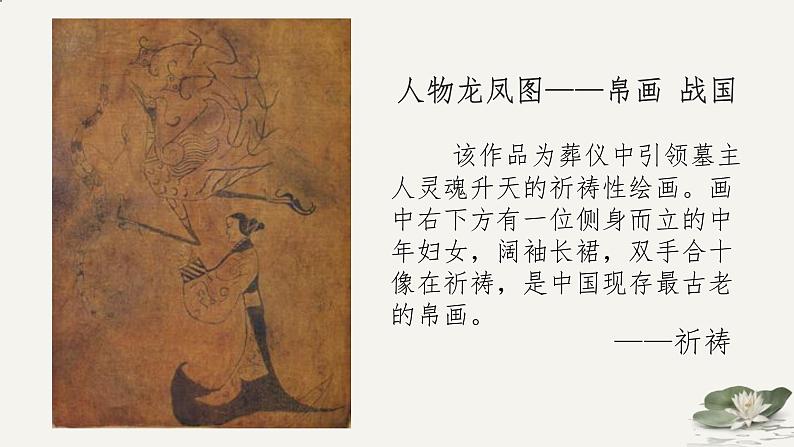 人物龙凤图——帛画 战国
该作品为葬仪中引领墓主
人灵魂升天的祈祷性绘画。画
中右下方有一位侧身而立的中
年妇女，阔袖长裙，双手合十
像在祈祷，是中国现存最古老
的帛画。
——祈祷